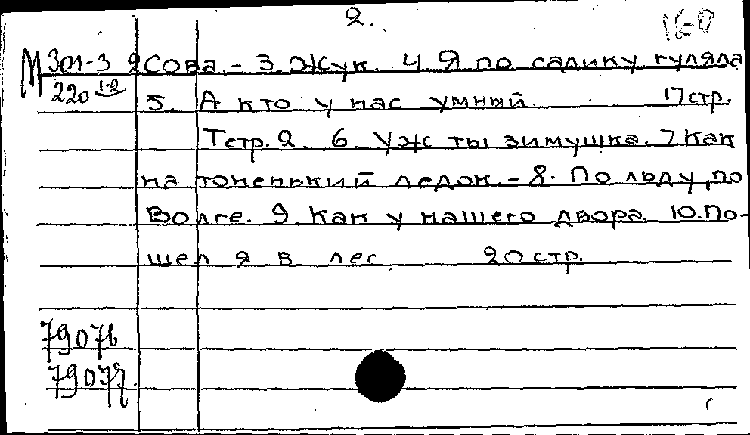 2.
16-0
М 301-3 2 Сова. - 3. Жук. 4. Я по садику гуляла
220 1-2 5. А кто у нас умный. 17 стр.
Тетр. 2. 6. Уж ты зимушка. 7. Как
на тоненький ледок. - 8. По льду, по
Волге. 9. Как у нашего двора. 10. По-
шел я в лес. 20 стр.
79076
79077